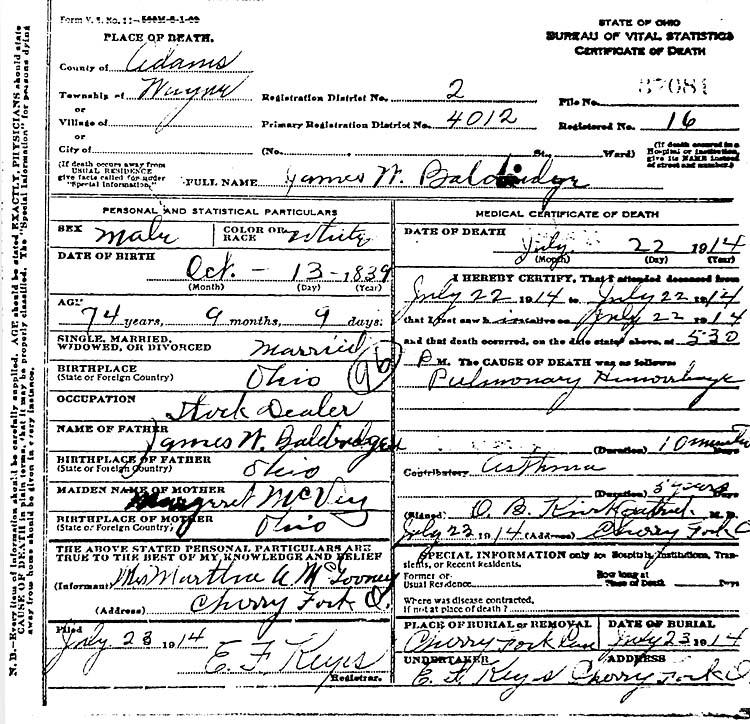 Form V. S. No. 11—500M-8-1-09
PLACE OF DEATH.
STATE OF OHIO
BUREAU OF VITAL STATISTICS
CERTIFICATE OF DEATH
County of Adams
Township of Wayne
or
Village of
or
City of
Registration District No. 2
File No. 37081
Primary Registration District No. 4012
Registered No. 16
(No. St., Ward)
(If death occured in a Hospital or institution, give its NAME instead of street and number.)
(If death occurs away from USUAL RESIDENCE give facts called for under "Special Information.")
FULL NAME James W. Baldridge
PERSONAL AND STATISTICAL PARTICULARS
SEX Male
COLOR OR RACE White
DATE OF BIRTH
Oct. - 13 - 1839
(Month) (Day) (Year)
AGE
74 years, 9 months, 9 days.
SINGLE, MARRIED, WIDOWED, OR DIVORCED Married
BIRTHPLACE
(State or Foreign Country) Ohio
OCCUPATION
Stock Dealer
NAME OF FATHER
James W. Baldridge
BIRTHPLACE OF FATHER
(State or Foreign Country) Ohio
MAIDEN NAME OF MOTHER
Margaret McVey
BIRTHPLACE OF MOTHER
(State or Foreign Country) Ohio
THE ABOVE STATED PERSONAL PARTICULARS ARE TRUE TO THE BEST OF MY KNOWLEDGE AND BELIEF
(Informant) Mrs Martha A.
(Address) Cherry Fork O.
Filed
July 23 1914
E. F. Keyes
Registrar.
MEDICAL CERTIFICATE OF DEATH
DATE OF DEATH
July 22 1914
(Month) (Day) (Year)
I HEREBY CERTIFY, That I attended deceased from
July 22 1914 to July 22 1914
that I last saw him alive on July 22 1914
and that death occurred, on the date stated above, at 5:30
P M. The CAUSE OF DEATH was as follows:
Pulmonary Hemorrhage
(Duration) 10 minutes Days
Contributory Asthma
(Duration) 5 years Days
(Signed) O. B. Kirkpatrick M. D.
July 23 1914 (Address) Cherry Fork O
SPECIAL INFORMATION only for Hospitals, Institutions, Transients, or Recent Residents.
Former or Usual Residence
How long at Place of Death Days
Where was disease contracted, If not at place of death?
PLACE OF BURIAL OR REMOVAL
Cherry Fork Cem
DATE OF BURIAL
July 23 1914
UNDERTAKER
E. F. Keys
ADDRESS
Cherry Fork O
N. B.—Every item of information should be carefully supplied. AGE should be stated EXACTLY. PHYSICIANS should state
CAUSE OF DEATH in plain terms, that it may be properly classified. The "Special Information" for persons dying
away from home should be given in every instance.